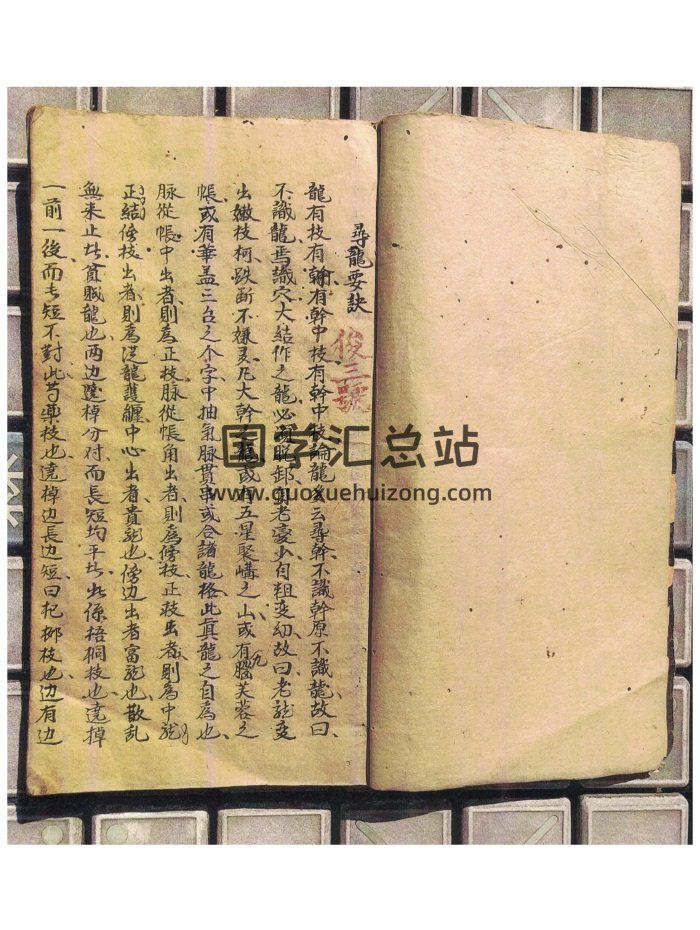 尋龍要訣
俊三號
龍有枝有幹有幹中枝有幹中枝論龍者云尋幹不識幹原不識龍故曰
不識龍焉識穴大結作之龍必剝脫卸自老變少自粗变幼故曰老龍变
出嫩枝柯跌斷不嫌多凡大幹之龍或有五星聚講之山或有腦芙蓉之
九
帳或有華盖三台之个字中抽氣脉貫串或合諸龍格此真龍之自為也
脉從帳中出者則為正枝脉從帳角出者則為傍枝正枝出者則為中龍
正結傍枝出者則為從龍護纏中心出者貴龍也傍边出者富龍也散乱
無来止此貧賤龍也两边蹺棹分对而長短均平此係梧桐枝也蹺棹
一前一後而長短不對此芍藥枝也蹺棹边長边短曰杞柳枝也边有边
国学汇总站
www.guoxuehuizong.com